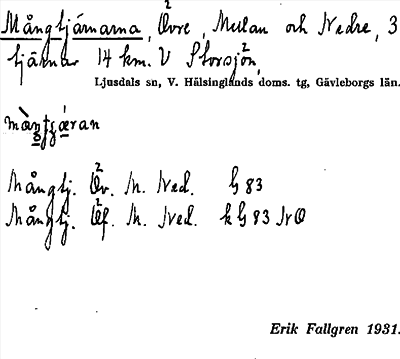 Mångtjärnarna, Övre, Mellan och Nedre, 3
tjärnar 14 km. V Storsjön,
Ljusdals sn, V. Hälsinglands doms. tg, Gävleborgs län.
Mångtj. Öv. M. Ned. G 83
Mångtj. Öf. M. Ned. k G 83 NO
Erik Fallgren 1931.